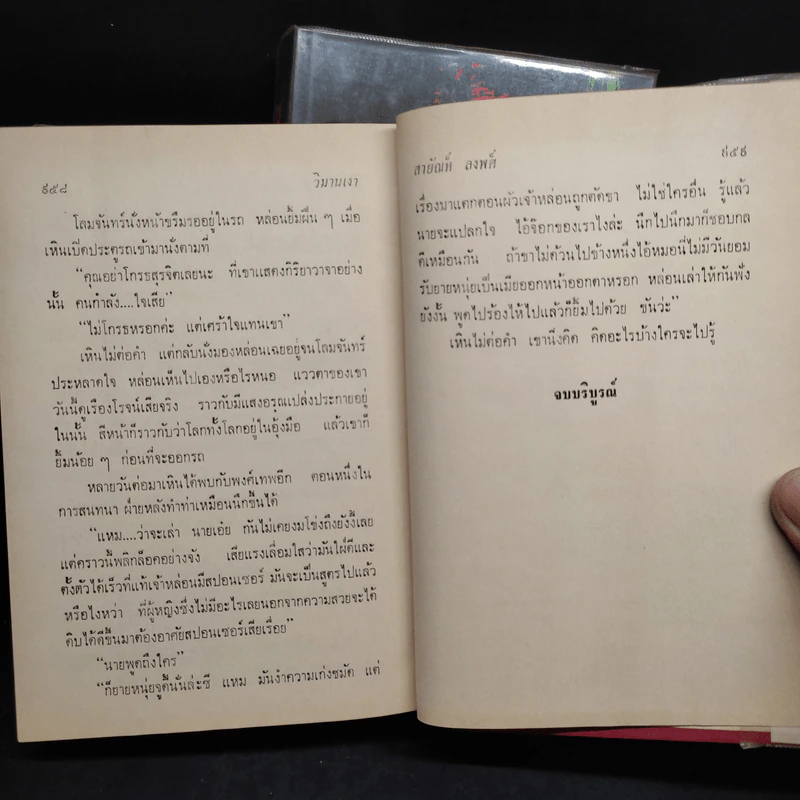 ๙๕๘ วิมานเงา
โฉมจันทร์นั่งหน้าขรึมรออยู่ในรถ หล่อนยิ้มฝืน ๆ เมื่อ
เหินเปิดประตูรถเข้ามานั่งตามที่
“คุณอย่าโกรธสุรจิตเลยนะ ที่เขาแสดงกิริยาวาจาอย่าง
นั้น คนกำลัง....ใจเสีย”
“ไม่โกรธหรอกค่ะ แต่เศร้าใจแทนเขา”
เหินไม่ต่อคำ แต่กลับนั่งมองหล่อนเฉยอยู่จนโฉมจันทร์
ประหลาดใจ หล่อนเห็นไปเองหรือไรหนอ แววตาของเขา
วันนี้ดูเรืองโรจน์เสียจริง ราวกับมีแสงอรุณเปล่งประกายอยู่
ในนั้น สีหน้าก็ราวกับว่าโลกทั้งโลกอยู่ในอุ้งมือ แล้วเขาก็
ยิ้มน้อย ๆ ก่อนที่จะออกรถ
หลายวันต่อมาเหินได้พบกับพงศ์เทพอีก ตอนหนึ่งใน
การสนทนา ฝ่ายหลังทำท่าเหมือนนึกขึ้นได้
“แหม....ว่าจะเล่า นายเอ๋ย กันไม่เคยงมโข่งถึงยังงี้เลย
แต่คราวนี้พลิกล็อคอย่างจัง เสียแรงเลื่อมใสว่ามันใฝ่ดีและ
ตั้งตัวได้เร็วที่แท้เจ้าหล่อนมีสปอนเซอร์ มันจะเป็นสูตรไปแล้ว
หรือไงหว่า ที่ผู้หญิงซึ่งไม่มีอะไรเลยนอกจากความสวยจะได้
ดิบได้ดีขึ้นมาต้องอาศัยสปอนเซอร์เสียเรื่อย”
“นายพูดถึงใคร”
“ก็ยายหนุ่ยจูดี้นั่นล่ะซี แหม มันงำความเก่งชมัด แต่
สายัณห์ ลงพต์ ๙๕๙
เรื่องมาแตกตอนผัวเจ้าหล่อนถูกตัดขา ไม่ใช่ใครอื่น รู้แล้ว
นายจะแปลกใจ ไอ้จ๊อกของเราไงล่ะ นึกไปนึกมาก็ชอบกล
ดีเหมือนกัน ถ้าขาไม่ด้วนไปข้างหนึ่งไอ้หมอนี่ไม่มีวันยอม
รับยายหนุ่ยเป็นเมียออกหน้าออกตาหรอก หล่อนเล่าให้กันฟัง
ยังงั้น พูดไปร้องไห้ไปแล้วก็ยิ้มไปด้วย ขันว่ะ”
เหินไม่ต่อคำ เขานิ่งคิด คิดอะไรบ้างใครจะไปรู้
จบบริบูรณ์